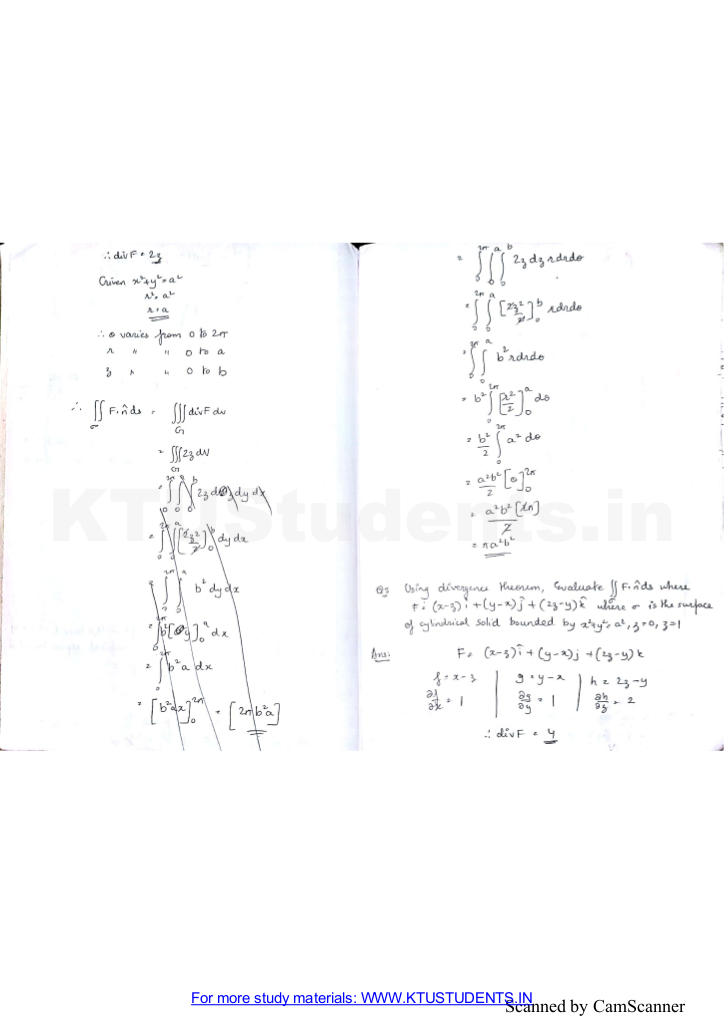 ∴ div F = 2z
Given x²+y²=a²
r²=a²
r=a
∴ θ varies from 0 to 2π
r " " 0 to a
z " " 0 to b
∴ ∬_σ F.n̂ ds = ∭_G div F dv
= ∭_G 2z dV
= ∫₀^2π ∫₀^a ∫₀^b 2z dz dy dx
= ∫₀^2π ∫₀^a [2z²/2]₀^b dy dx
= ∫₀^2π ∫₀^a b² dy dx
= ∫₀^2π b² [y]₀^a dx
= ∫₀^2π b² a dx
= [b² a x]₀^2π = [2π b² a]
= ∫₀^2π ∫₀^a ∫₀^b 2z dz r dr dθ
= ∫₀^2π ∫₀^a [2z²/2]₀^b r dr dθ
= ∫₀^2π ∫₀^a b² r dr dθ
= b² ∫₀^2π [r²/2]₀^a dθ
= b²/2 ∫₀^2π a² dθ
= a²b²/2 [θ]₀^2π
= a²b² [2π]/2
= πa²b²
Q3 Using divergence theorem, Evaluate ∬_σ F.n̂ ds where
F = (x-z)î + (y-x)ĵ + (2z-y)k̂ where σ is the surface
of cylindrical solid bounded by x²+y²=a², z=0, z=1
Ans: F = (x-z)î + (y-x)j + (2z-y)k
f = x-z | g = y-x | h = 2z-y
∂f/∂x = 1 | ∂g/∂y = 1 | ∂h/∂z = 2
∴ div F = 4
KTUStudents.in
For more study materials: WWW.KTUSTUDENTS.IN
Scanned by CamScanner